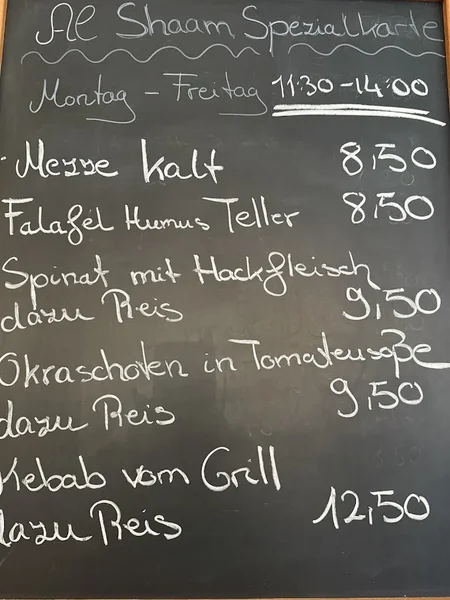 Al Shaam Spezialkarte
Montag - Freitag 11:30-14:00
Mezze kalt 8,50
Falafel Humus Teller 8,50
Spinat mit Hackfleisch
dazu Reis 9,50
Okraschoten in Tomatensoße
dazu Reis 9,50
Kebab vom Grill
dazu Reis 12,50